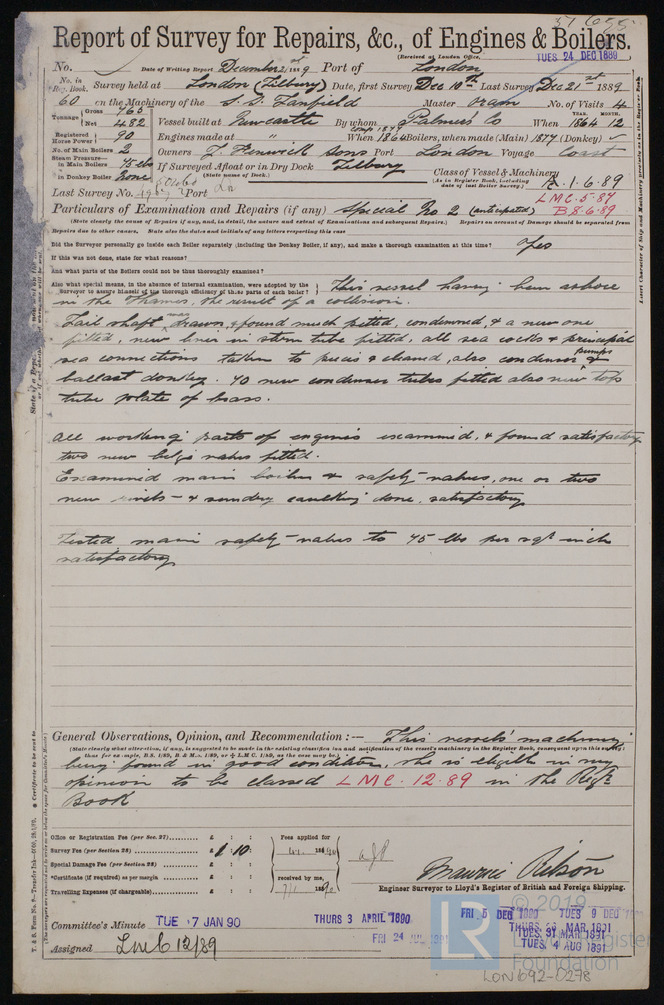 Report of Survey for Repairs, &c., of Engines & Boilers.
(Received at London Office, TUES 24 DEC 1889
No. Date of Writing Report December 21st 1889 Port of London
No. in Reg. Book. Survey held at London (Tilbury) Date, first Survey Dec 10th Last Survey Dec 21st 1889
60 on the Machinery of the S.S. Tanfield Master Oram No. of Visits 4
Tonnage Gross 765 Net 482 Vessel built at Newcastle By whom Palmers Co When 1864 12
YEAR. MONTH.
Registered Horse Power 90 Engines made at " When 1864 Boilers, when made (Main) 1877 (Donkey)
No. of Main Boilers 2 Owners J. Fenwick & Sons Port London Voyage Coast
Steam Pressure— in Main Boilers 45 lbs If Surveyed Afloat or in Dry Dock Tilbury
(State name of Dock.)
in Donkey Boiler None Class of Vessel & Machinery A.1.6.89
(As in Register Book, including date of last Boiler Survey.)
Last Survey No. Port Ln L.M.C. 5.87
B.S. 6.89
Particulars of Examination and Repairs (if any) Special No 2 (anticipated)
(State clearly the cause of Repairs if any, and, in detail, the nature and extent of Examinations and subsequent Repairs.) Repairs on account of Damage should be separated from
Repairs due to other causes. State also the dates and initials of any letters respecting this case
Did the Surveyor personally go inside each Boiler separately (including the Donkey Boiler, if any), and make a thorough examination at this time? Yes
If this was not done, state for what reasons?
And what parts of the Boilers could not be thus thoroughly examined?
Also what special means, in the absence of internal examination, were adopted by the Surveyor to assure himself of the thorough efficiency of those parts of each boiler? This vessel having been ashore
in the Thames, the result of a collision.
Tail shaft drawn, & found much pitted, condemned, & a new one
fitted, new liner in stern tube fitted, all sea cocks & principal
sea connections taken to pieces & cleaned, also condenser & pumps
ballast donkey. 40 new condenser tubes fitted also new top
tube plate of brass.
All working parts of engines examined, & found satisfactory
two new bilge valves fitted.
Examined main boilers & safety-valves, one or two
new rivets & sundry caulking done, satisfactory
Tested main safety-valves to 45 lbs per sqr inch
satisfactory
General Observations, Opinion, and Recommendation :— This vessels' machinery
(State clearly what alteration, if any, is suggested to be made in the existing classification and notification of the vessel's machinery in the Register Book, consequent upon this survey;
thus for example, B.S. 1/89, B. & M.S. 1/89, or L.M.C. 1/89, as the case may be.)
being found in good condition, she is eligible in my
opinion to be classed L.M.C. 12.89 in the Regr
Book
Office or Registration Fee (per Sec. 27) £ : :
Survey Fee (per Section 28) £ 1 : 10 :
Special Damage Fee (per Section 28) £ : :
*Certificate (if required) as per margin £ : :
Travelling Expenses (if chargeable) £ : :
Fees applied for
received by me,
Maurice Gibson
Engineer Surveyor to Lloyd's Register of British and Foreign Shipping.
Committee's Minute TUE 7 JAN 90
THURS 3 APRIL 1890
FRI 5 DEC 1890
TUES 9 DEC
TUES. 31 MAR 1891
TUES. 4 AUG 1891
Assigned Lmb 12/89
LR
© 2019
Lloyd's Register
Foundation
LON692-0278